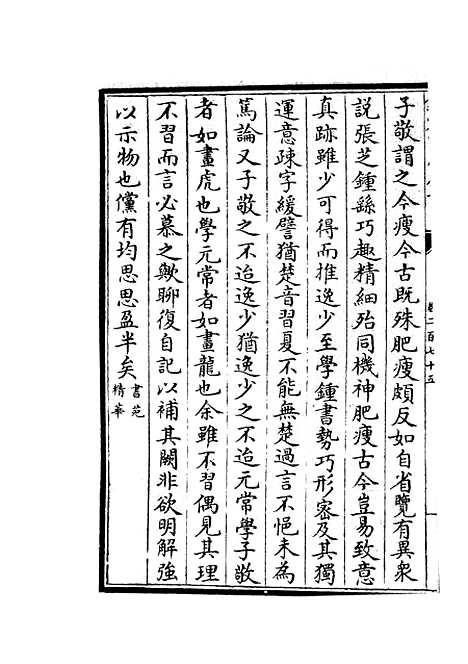 子敬謂之今瘦今古既殊肥瘦頗反如自省覽有異衆
説張芝鍾繇巧趣精細殆同機神肥瘦古今豈易致意
真跡雖少可得而推逸少至學鍾書勢巧形密及其獨
運意疎字緩譬猶楚音習夏不能無楚過言不悒未為
篤論又子敬之不迨逸少猶逸少之不迨元常學子敬
者如畫虎也學元常者如畫龍也余雖不習偶見其理
不習而言必慕之歟聊復自記以補其闕非欲明解強
以示物也儻有均思思盈半矣書苑
精華
卷二百七十五